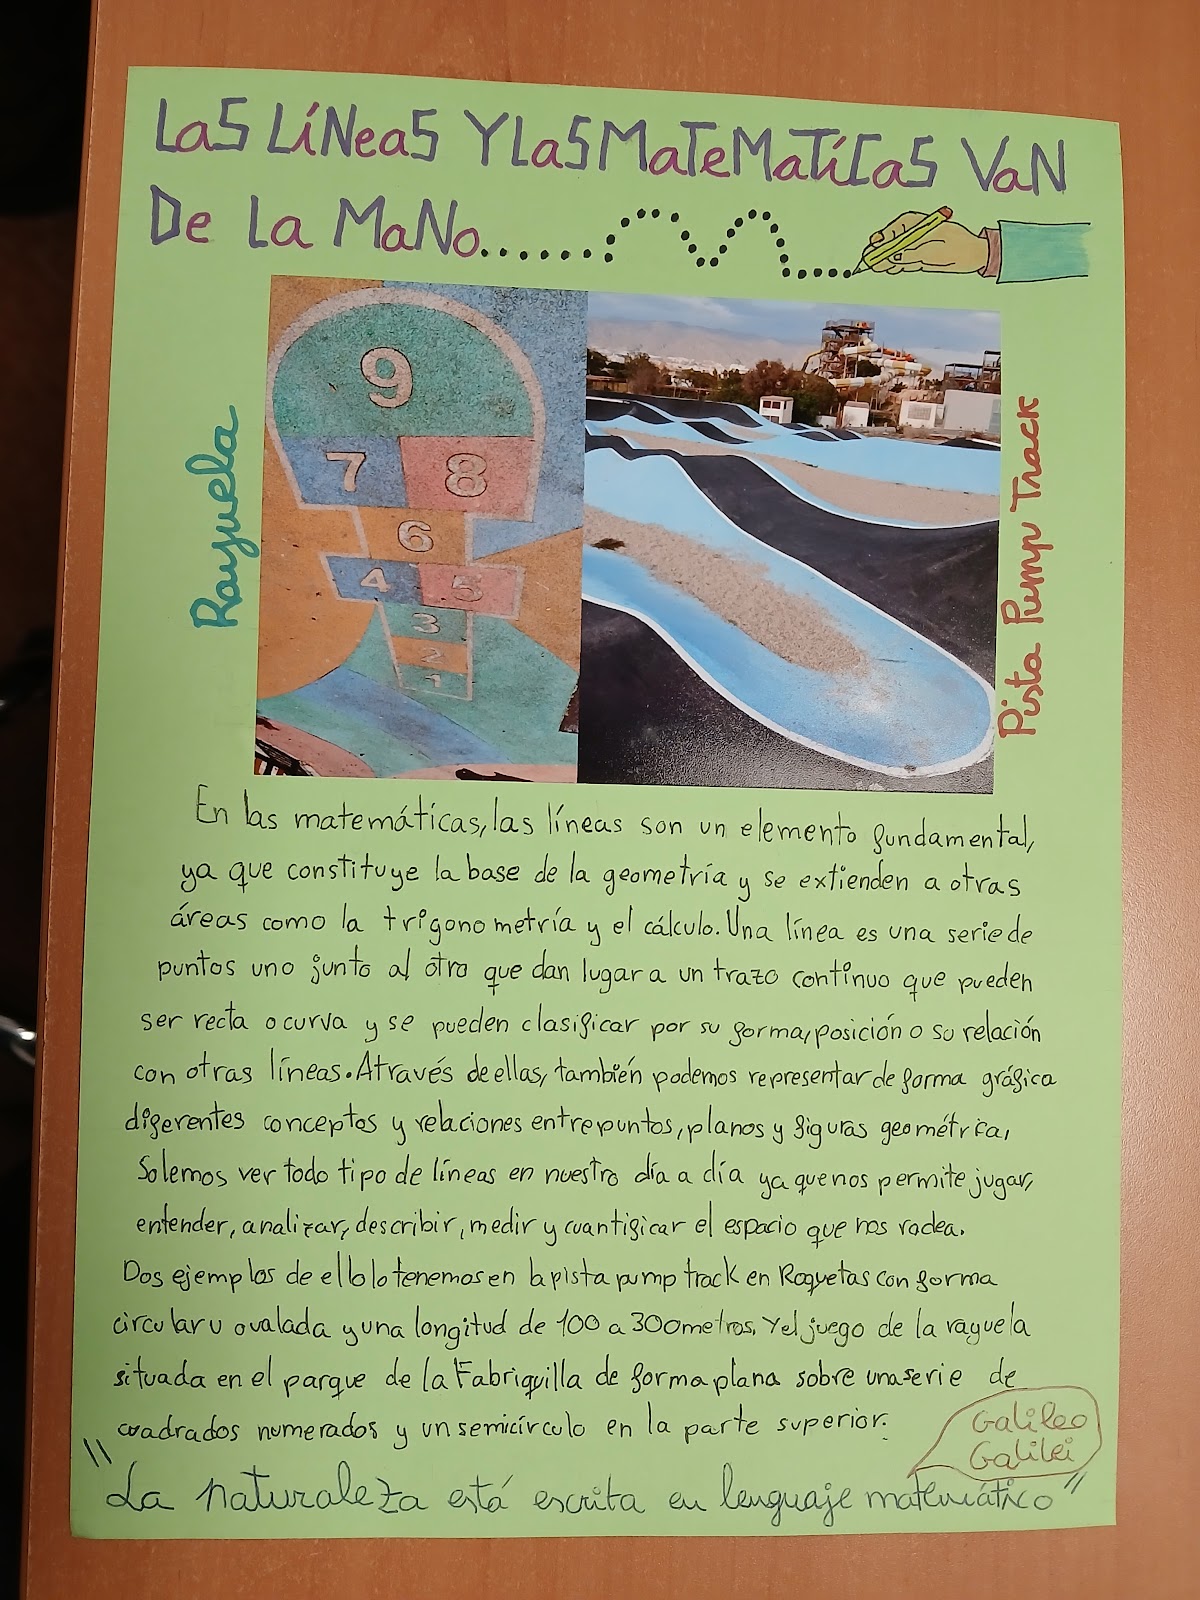 Las Líneas Y Las Matemáticas Van
De La Mano......
Rayuela
9
7 8
6
4 5
3
2
1
Pista Pump Track
En las matemáticas, las líneas son un elemento fundamental,
ya que constituye la base de la geometría y se extienden a otras
áreas como la trigonometría y el cálculo. Una línea es una serie de
puntos uno junto al otro que dan lugar a un trazo continuo que pueden
ser recta o curva y se pueden clasificar por su forma, posición o su relación
con otras líneas. Através de ellas, también podemos representar de forma gráfica
diferentes conceptos y relaciones entre puntos, planos y figuras geométrica,
Solemos ver todo tipo de líneas en nuestro día a día ya que nos permite jugar,
entender, analizar, describir, medir y cuantificar el espacio que nos rodea.
Dos ejemplos de ello lo tenemos en la pista pump track en Roquetas con forma
circular u ovalada y una longitud de 100 a 300 metros. Y el juego de la rayuela
situada en el parque de la Fabriquilla de forma plana sobre una serie de
cuadrados numerados y un semicírculo en la parte superior.
Galileo
Galilei
"La naturaleza está escrita en lenguaje matemático"